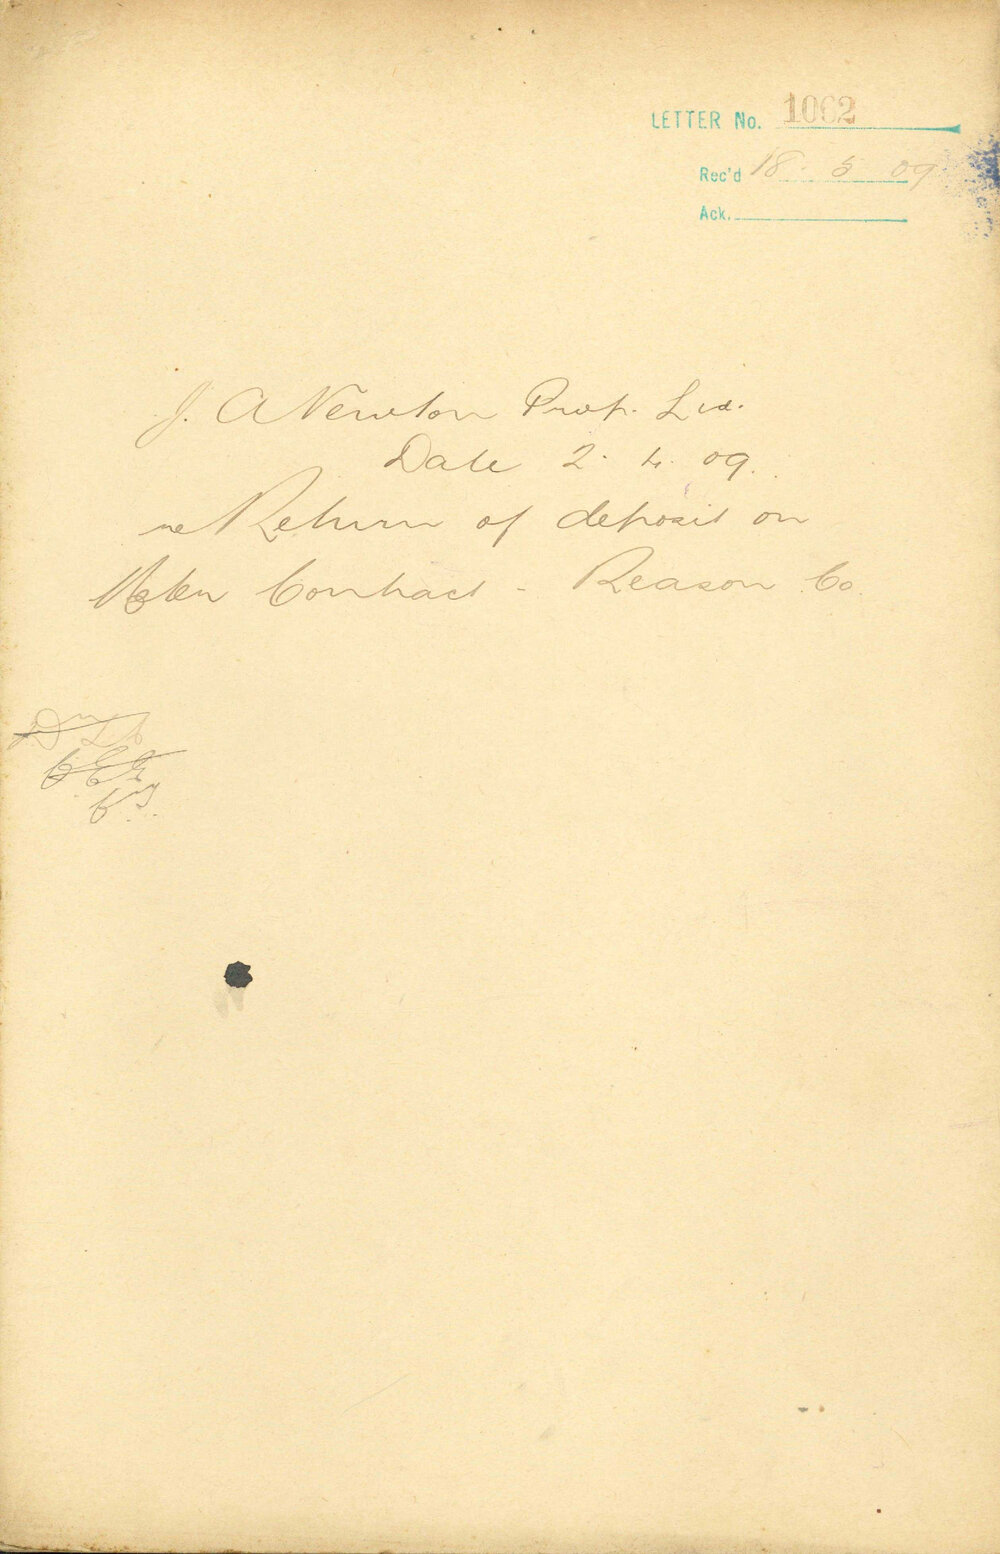 LETTER No. 1062
Rec'd 18. 5 09
Ack.
J. A Newton Prop. Ltd.
Date 2. 4. 09.
re Return of deposit on
Contract - Reason Co.